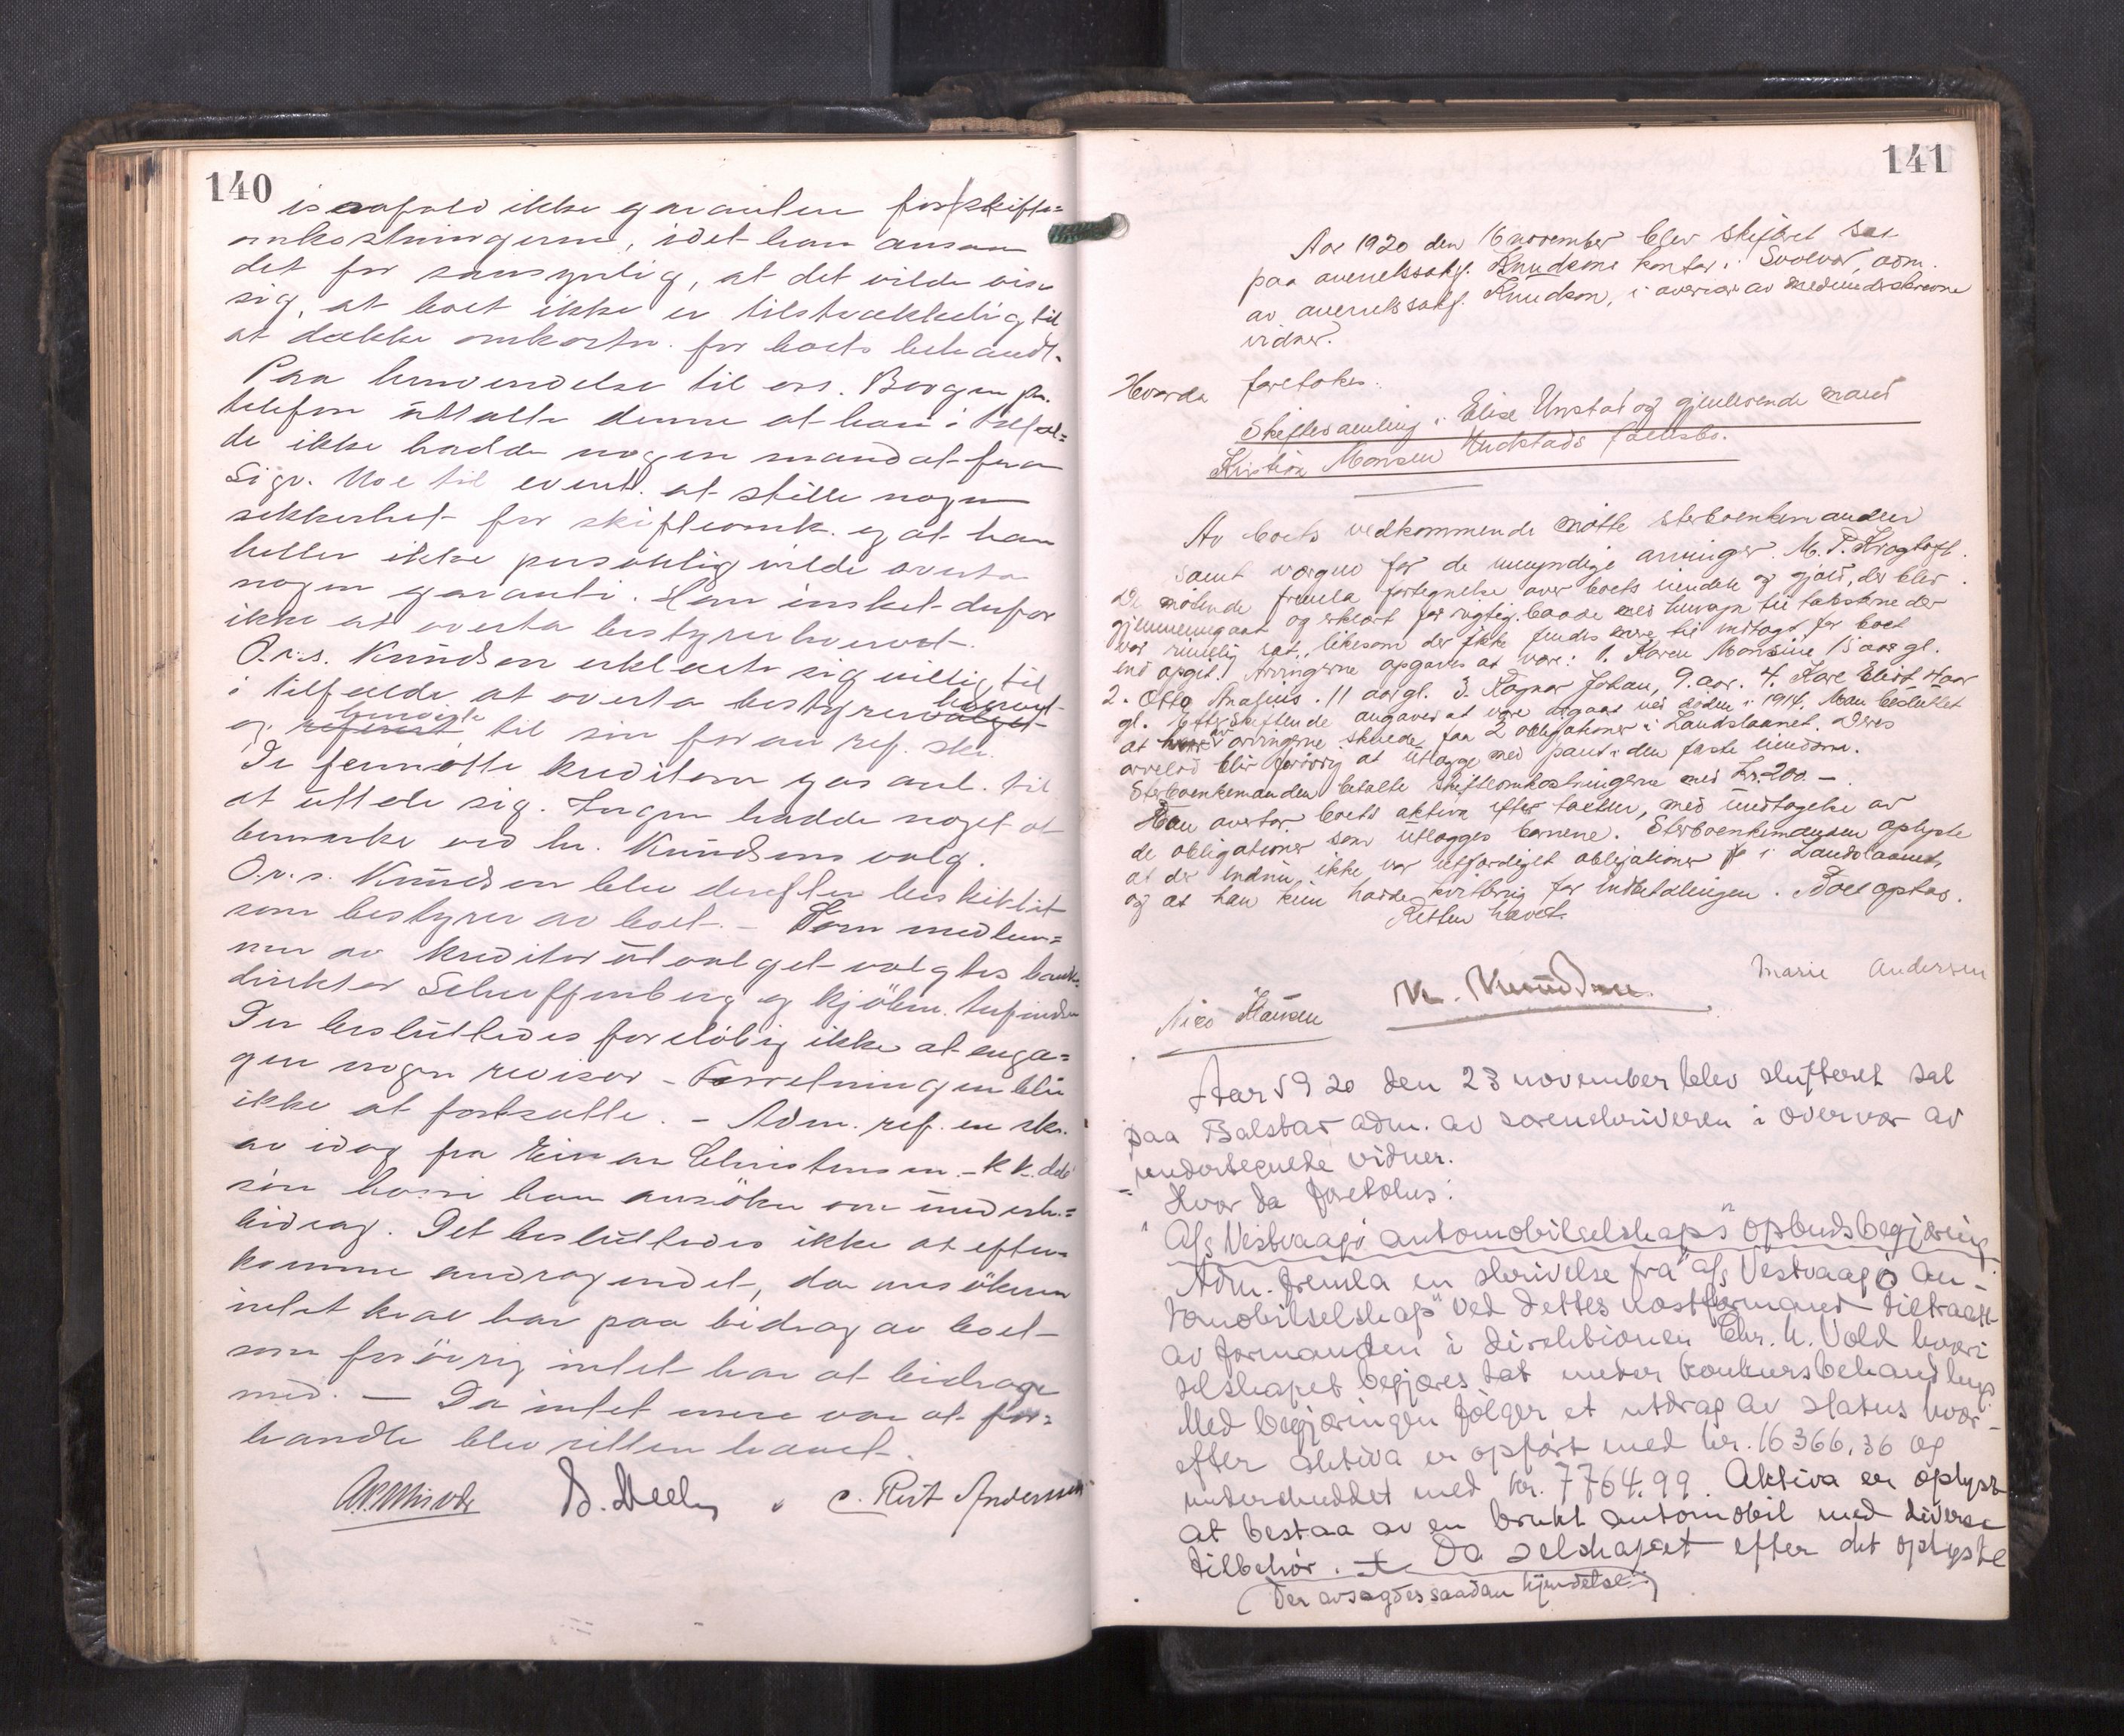 140
isaafald ikke garantere for skifte=
omkostningerne, idet han ansaa
det for sansynlig, at det vilde vise
sig, at boet ikke er tilstrækkelig til
at dække omkostn. for boets behandl.
Paa henvendelse til ors. Borgen pr.
telefon uttalte denne at han i tilfæl=
de ikke hadde nogen mandat fra
Sigv. Moe til event. at stille nogen
sikkerhet for skifteomk. og at han
heller ikke personlig vilde overta
nogen garanti. Han ønsket derfor
ikke at overta bestyrerhvervet.
O.r.s. Knudsen erklærte sig villig til
i tilfælde at overta bestyrerhvervet
og henviste til sin foran ref. skr.
De fremmøtte kreditorer gas anl. til
at uttale sig. Ingen hadde noget at
bemerke ved hr. Knudsens valg.
O.r.s. Knudsen blev derefter beskikket
som bestyrer av boet. – Som medlem=
mer av kreditorutvalget valgtes bank=
direktør Scheffenberg og kjøbm.
Der besluttedes foreløbig ikke at enga=
gere nogen revisor – Forretningen blir
ikke at fortsætte. – Adm. ref. en skr.
av idag fra Einar Christensen – K.k.
søn hvori han ansøker om underh.=
bidrag. Det besluttedes ikke at efter=
komme andragendet, da ansøkeren
intet krav har paa bidrag av boet
som forøvrig intet har at bidrage
med. — Da intet mere var at for=
handle blev retten hævet.
C. Reit Andersen
141
Aar 1920 den 16 november blev skifteret sat
paa overretssakf. Knudsens kontor i Svolvær, adm.
av overretssakf. Knudsen, i overvær av medunderskrevne
vidner.
Hvorda foretokes:
Skiftesamling i Elise Unstad og gjenlevende mand
Kristian Monsen Undstads fællesbo.
Av boets vedkommende møtte sterboenkemanden
samt værgen for de umyndige arvinger M. P. Kragtoft.
De møtende fremla fortegnelse over boets eiendele og gjæld, der blev
gjennemgaat og erklært for rigtig baade med hensyn til takstene der
var rimelig sat, likesom der ikke fandtes mere til indtægt for boet
end opgit. Arvingerne opgaves at være: 1. Karen Monsine 15 aar gl.
2. Otto Andreas 11 aar gl. 3. Ragnar Johan, 9 aar. 4. Kare Elist 4 aar
gl. Efterskiftende angaves at være avgaat ved døden i 1914. Man besluttet
at av arvingerne skulde faa 2 obligationer i Landslaanet. Deres
arvelod blir forøvrig at utlægge med pant i den faste eiendom.
Sterboenkemanden betalte skifteomkostningerne med kr. 200 –
Han overtar boets aktiva efter taksten, med undtagelse av
de obligationer som utlægges barnene. Sterboenkemanden oplyste
at der endnu ikke var utfærdiget obligationer i Landslaanet,
og at han kun hadde kvittering for indbetalingen. Boet optas.
Retten hævet.
Nico Hansen K. Knudsen Marie Andersen
Aar 1920 den 23 november blev skifteret sat
paa Balstad adm. av sorenskriveren i overvær av
undertegnede vidner.
Hvor da foretokes:
"A/s Vestvaagø automobilselskaps" opbudsbegjæring
Adm. fremla en skrivelse fra "a/s Vestvaagø au-
tomobilselskap" ved dettes næstformand tiltraadt
av formanden i direktionen Chr. H. Vold hvori
selskapet begjæres tat under konkursbehandling.
Med begjæringen følger et utdrag av status hvor-
efter aktiva er opført med kr. 16 366,36 og
underskuddet med kr. 7764.99. Aktiva er oplyst
at bestaa av en brukt automobil med diverse
tilbehør. + Da selskapet efter det oplyste
(Der avsagdes saadan kjendelse:)